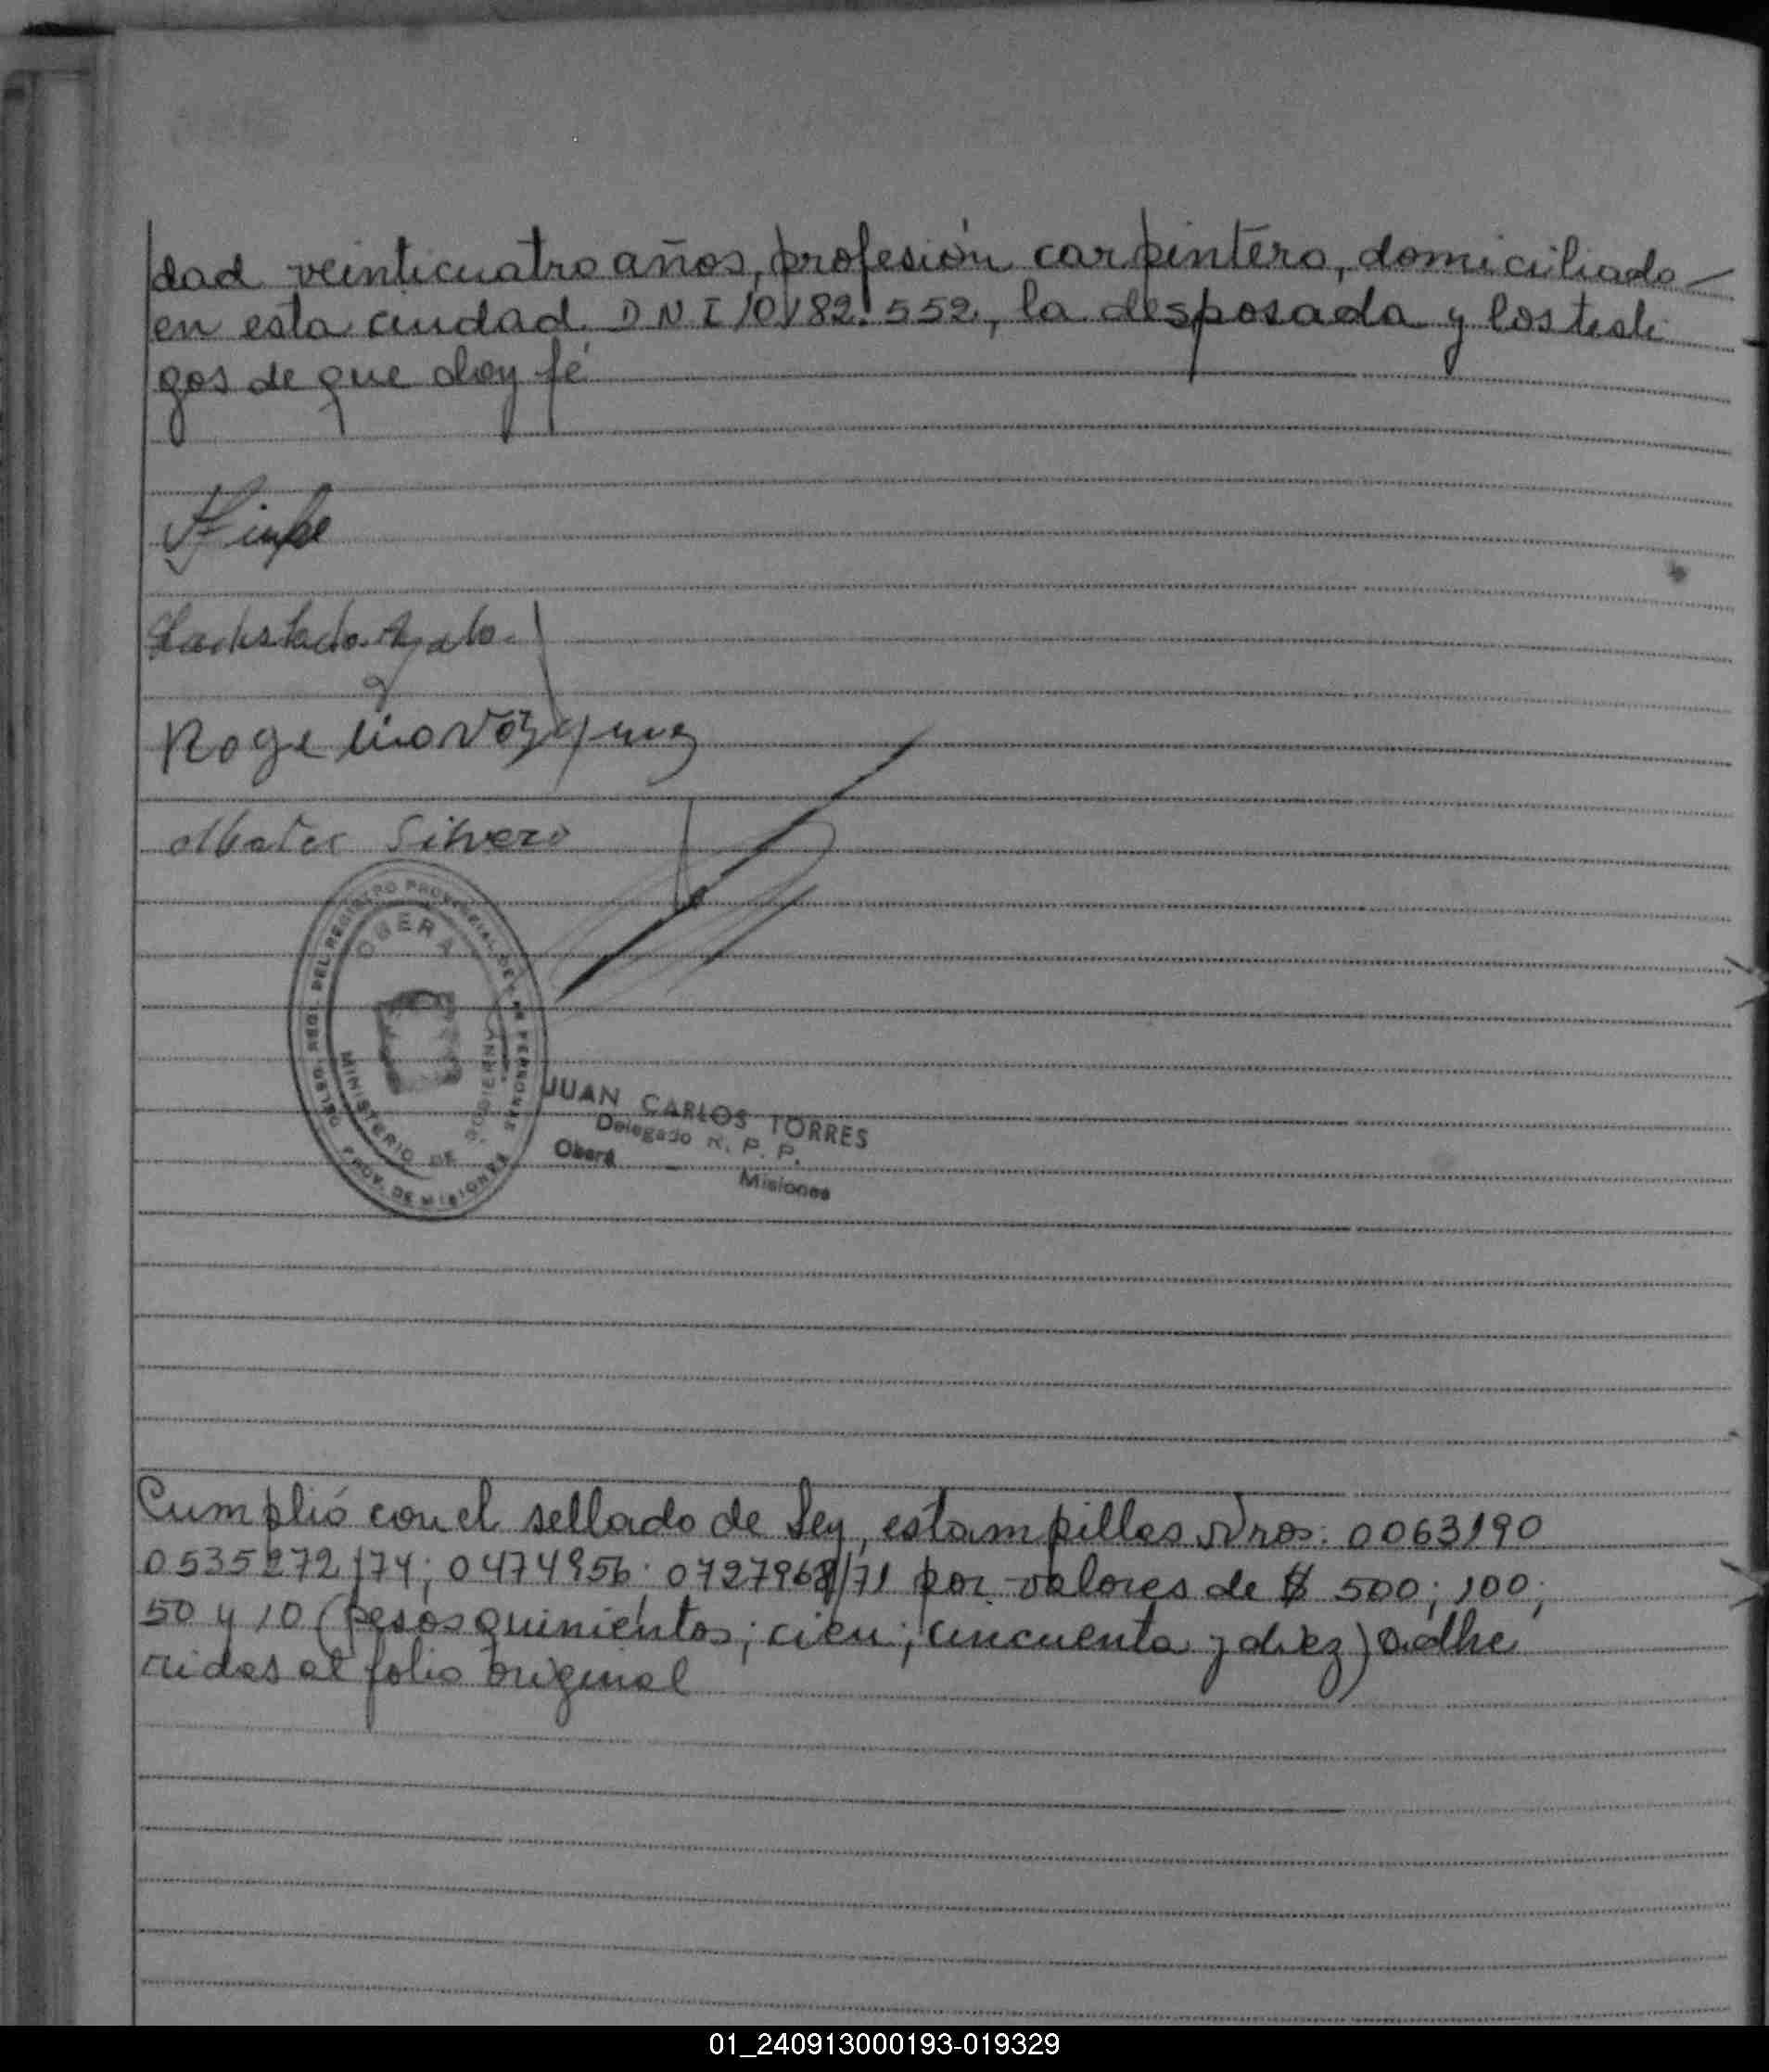 dad veinticuatro años, profesión carpintero, domiciliado
en esta ciudad D N I 10.182.552, la desposada y los testi
gos de que doy fé
Rogelio Vázquez
Silvero
DELEG. REGI. DEL REGISTRO PROVINCIAL DE LAS PERSONAS
OBERA
MINISTERIO DE GOBIERNO
PROV. DE MISIONES
JUAN CARLOS TORRES
Delegado R. P. P.
Oberá - Misiones
Cumplió con el sellado de Ley, estampillas Nros: 0063190
0535272/74; 0474956; 0727968/71 por valores de $ 500; 100;
50 y 10 (pesos quinientos; cien; cincuenta y diez) adhe
ridas al folio original
01_240913000193-019329